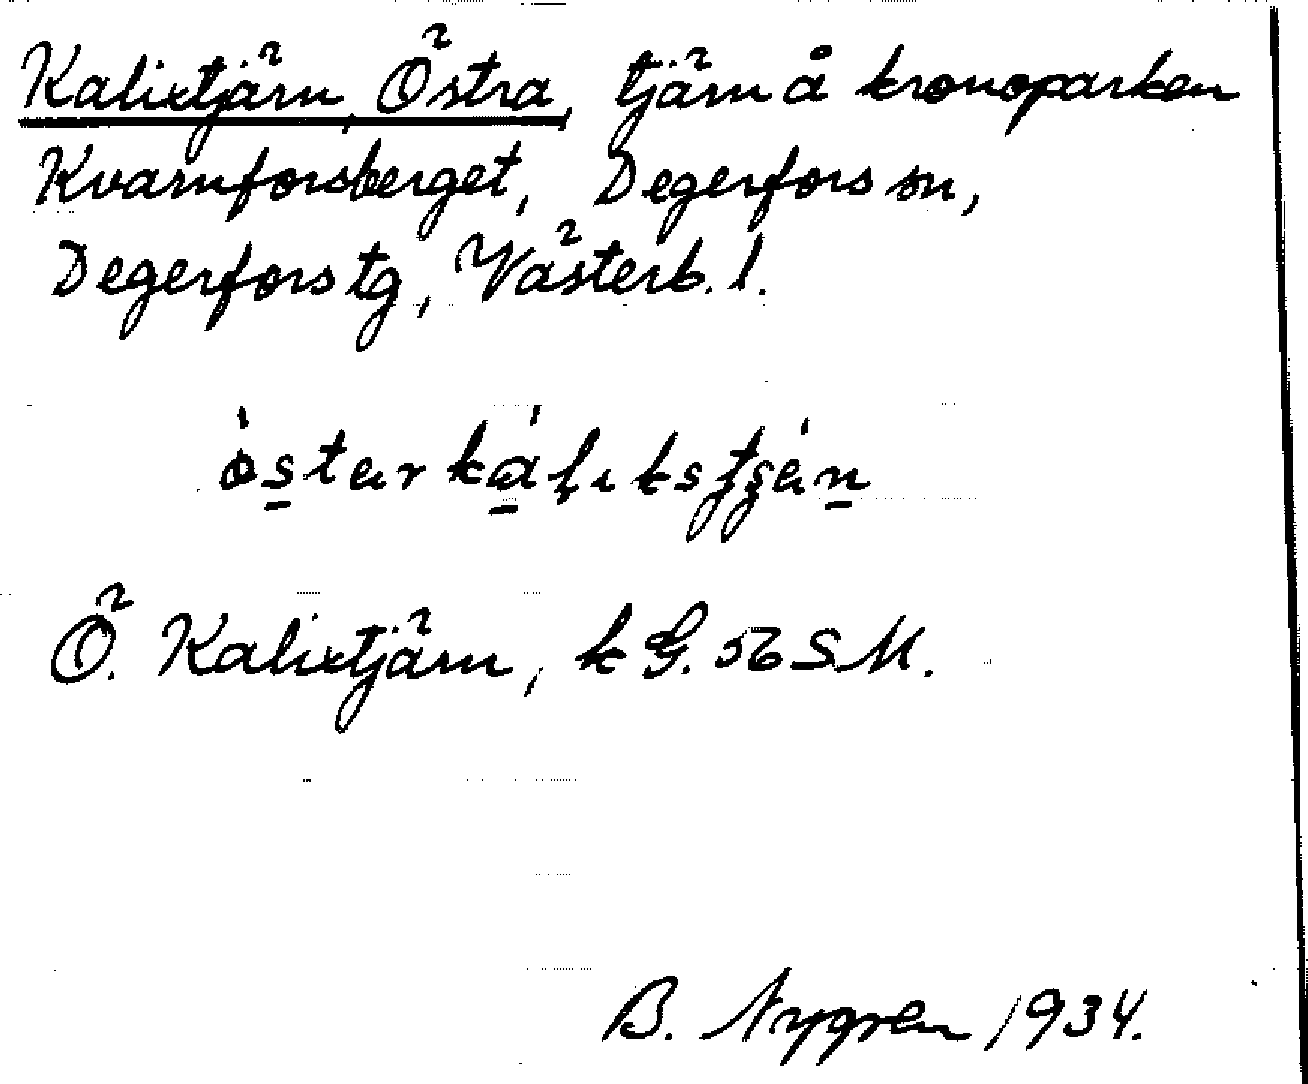 Kalixtjärn, Östra, tjärn å kronoparken
Kvarnforsberget, Degerfors sn,
Degerfors tg, Västerb. l.
Ö. Kalixtjärn, k G. 56 S M.
B. Nygren 1934.